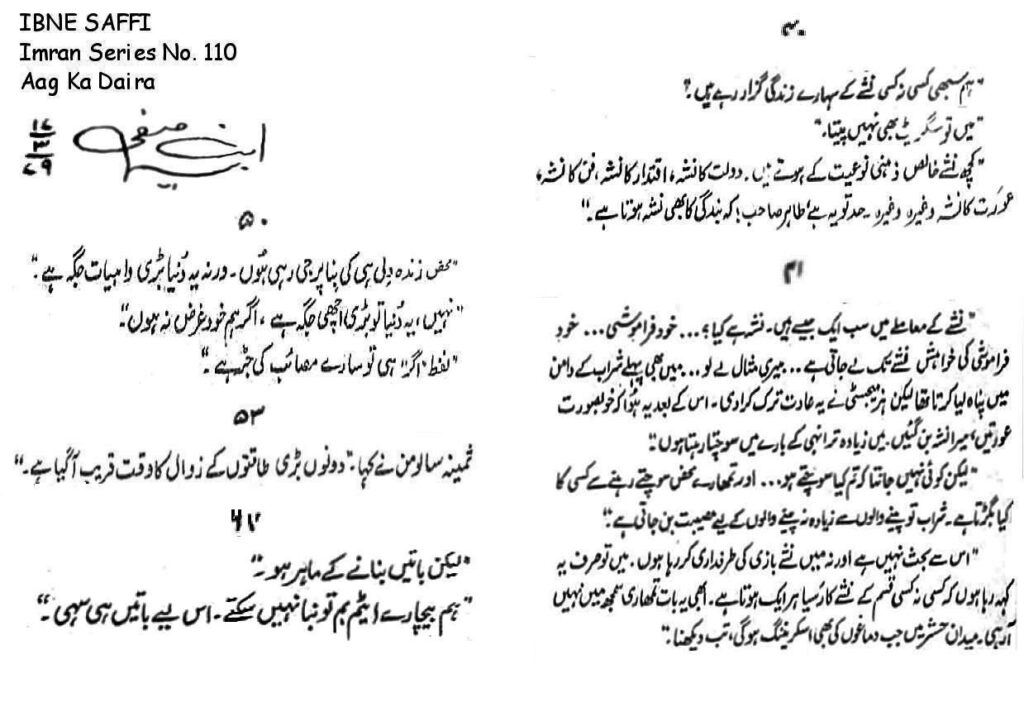 IBNE SAFFI
Imran Series No. 110
Aag Ka Daira
ابن صفی
۱۶
۳
۷۹
۵۰
"محض زندہ دلی ہی کی بنا پر جی رہی ہوں۔ ورنہ یہ دُنیا بڑی واہیات جگہ ہے۔"
"نہیں، یہ دُنیا تو بڑی اچھی جگہ ہے، اگر ہم خود غرض نہ ہوں"
"لفظ "اگر" ہی تو سارے مصائب کی جڑ ہے۔"
۵۳
ثمینہ سالومن نے کہا۔ "دونوں بڑی طاقتوں کے زوال کا وقت قریب آگیا ہے۔"
۶۷
"لیکن باتیں بنانے کے ماہر ہو۔"
"ہم بیچارے ایٹم بم تو بنا نہیں سکتے۔ اس لیے باتیں ہی سہی۔"
۳۰
"ہم سبھی کسی نہ کسی نشے کے سہارے زندگی گزار رہے ہیں۔"
"میں تو سگریٹ بھی نہیں پیتا۔"
"کچھ نشے خالص ذہنی نوعیت کے ہوتے ہیں۔ دولت کا نشہ، اقتدار کا نشہ، فن کا نشہ،
عورت کا نشہ وغیرہ وغیرہ۔ حد تو یہ ہے طاہر صاحب! کہ بندگی کا بھی نشہ ہوتا ہے۔"
۳۱
"نشے کے معاملے میں سب ایک جیسے ہیں۔ نشہ ہے کیا؟... خود فراموشی... خود
فراموشی کی خواہش نشے تک لے جاتی ہے... میری مثال لے لو... میں بھی پہلے شراب کے دامن
میں پناہ لیا کرتا تھا لیکن ہزمیجسٹی نے یہ عادت ترک کرادی۔ اس کے بعد یہ ہُوا کہ خوبصورت
عورتیں میرا نشہ بن گئیں۔ میں زیادہ تر انہی کے بارے میں سوچتا رہتا ہوں"
"لیکن کوئی نہیں جانتا کہ تم کیا سوچتے ہو... اور تمھارے محض سوچتے رہنے سے کسی کا
کیا بگڑتا ہے۔ شراب تو پینے والوں سے زیادہ نہ پینے والوں کے لیے مصیبت بن جاتی ہے"
"اس سے بحث نہیں ہے اور نہ میں نشے بازی کی طرفداری کر رہا ہوں۔ میں تو صرف یہ
کہہ رہا ہوں کہ کسی نہ کسی قسم کے نشے کا رسیا ہر ایک ہوتا ہے۔ ابھی یہ بات تمھاری سمجھ میں نہیں
آرہی۔ میدان حشر میں جب دماغوں کی بھی اسکریننگ ہوگی، تب دیکھنا۔"